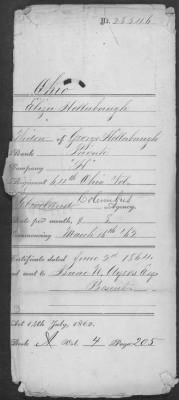 No. 28546
Ohio
Eliza Hollabaugh
Widow of George Hollabaugh
Rank Private
Company "H"
Regiment 64th Ohio Vol.
Cleveland Columbus Agency.
Rate per month, $
Commencing March 16th
Certificate dated June 2d 1864
and sent to Isaac N.
Present
Act 14th July, 1862.
Book A Vol. 4 Page 205